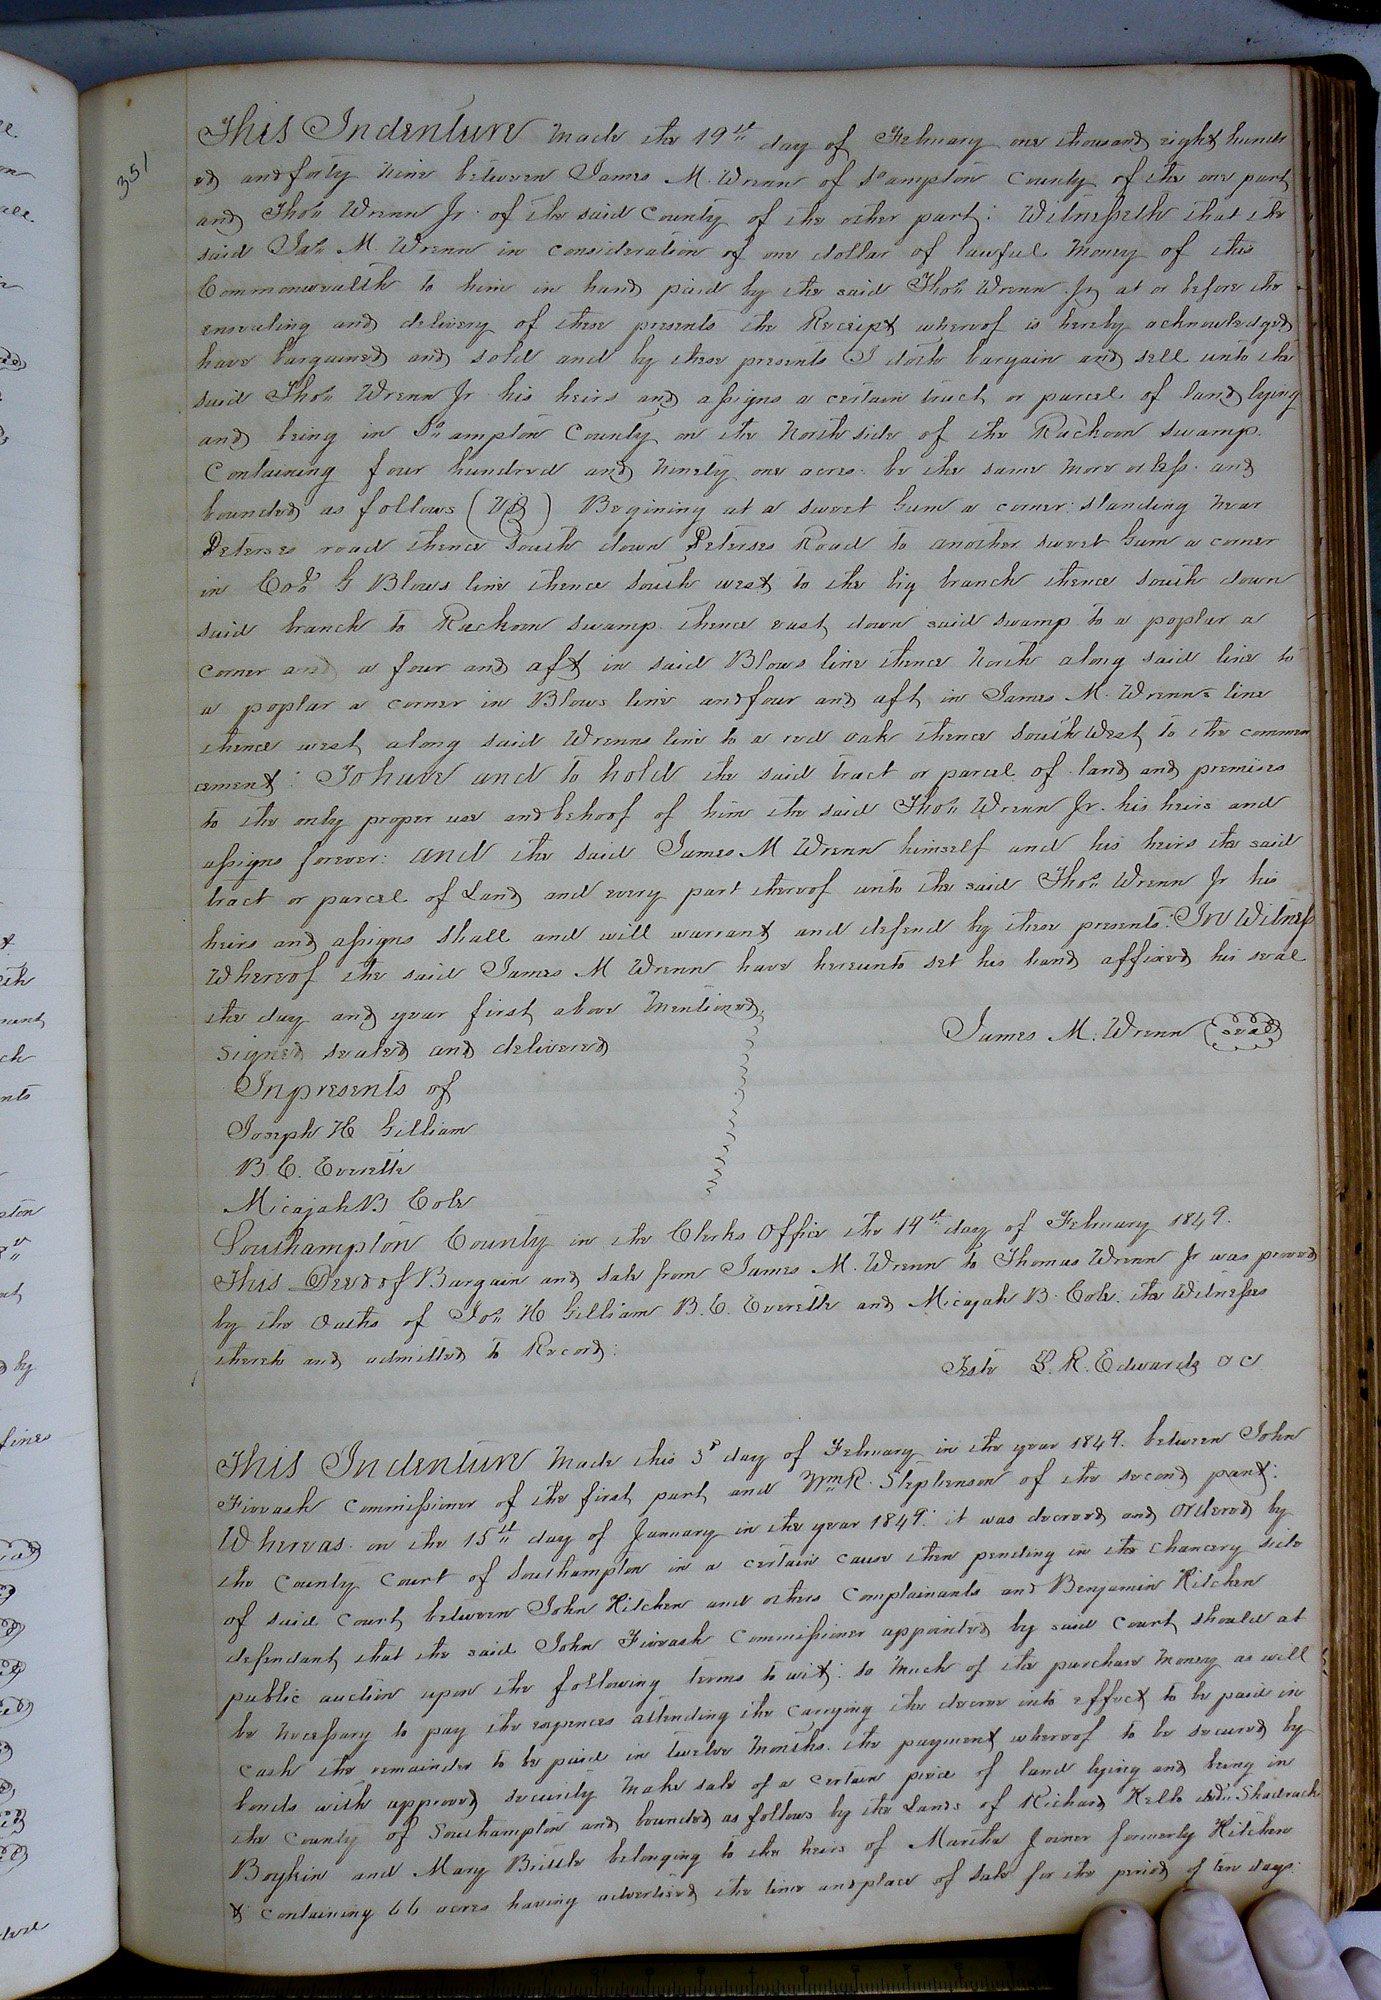 351
This Indenture made the 19th day of February one thousand eight hundr
ed and forty nine between James M. Wrenn of So ampton County of the one part
and Thos Wrenn Jr. of the said County of the other part: Witnesseth that the
said Jas M. Wrenn in consideration of one dollar of lawful money of this
Commonwealth to him in hand paid by the said Thos Wrenn Jr at or before the
ensealing and delivery of these presents the Receipt whereof is hereby acknowledged
have bargained and sold and by these presents I doth bargain and sell unto the
said Thos Wrenn Jr his heirs and assigns a certain tract or parcel of land lying
and being in So ampton County on the North side of the Rackoon swamp.
Containing four hundred and ninety one acres be the same more or less and
bounded as follows (Viz) Begining at a sweet Gum a corner: standing near
Peterses road thence South down Peterses Road to another sweet Gum a corner
in G Blows line thence South west to the big branch thence South down
said branch to Rackoon swamp thence east down said swamp to a poplar a
corner and a four and aft in said Blows line thence North along said line to
a poplar a corner in Blows line and four and aft in James M. Wrenns line
thence west along said Wrenns line to a red oak thence South West to the commen
cement: To have and to hold the said tract or parcel of land and premises
to the only proper use and behoof of him the said Thos Wrenn Jr. his heirs and
assigns forever: and the said James M Wrenn himself and his heirs the said
tract or parcel of Land and every part thereof unto the said Thos Wrenn Jr his
heirs and assigns shall and will warrant and defend by these presents: In Witness
Whereof the said James M Wrenn have hereunto set his hand affixed his seal
the day and year first above mentioned
signed sealed and delivered
James M. Wrenn (seal)
In presents of
Joseph H Gilliam
B. E. Everette
Micajah B Cole
Southampton County in the Clerks Office the 19th day of February 1849.
This Deed of Bargain and Sale from James M. Wrenn to Thomas Wrenn Jr was proved
by the Oaths of Jos H Gilliam B. E. Everette and Micajah B. Cole. the Witnesses
thereto and admitted to Record:
Teste L. R. Edwards
This Indenture made this 3d day of February in the year 1849. between John
Fivash Commissioner of the first part and Wm R. Stephenson of the second part:
Whereas on the 15th day of January in the year 1849: it was decreed and Ordered by
the County Court of Southampton in a certain cause then pending in the Chancery side
of said Court between John Kitchen and others Complainants and Benjamin Kitchen
defendant that the said John Fivash Commissioner appointed by said Court should at
public auction upon the following terms to wit: so much of the purchase money as will
be necessary to pay the expences attending the carrying the decree into effect to be paid in
cash the remainder to be paid in twelve months. the payment whereof to be secured by
bonds with approved security make sale of a certain peice of land lying and being in
the County of Southampton and bounded as follows by the Lands of Richard Kello Shadrack
Boykin and Mary Brittle belonging to the heirs of Martha Joiner formerly Kitchen
& containing 66 acres having advertised the time and place of sale for the period of ten days: